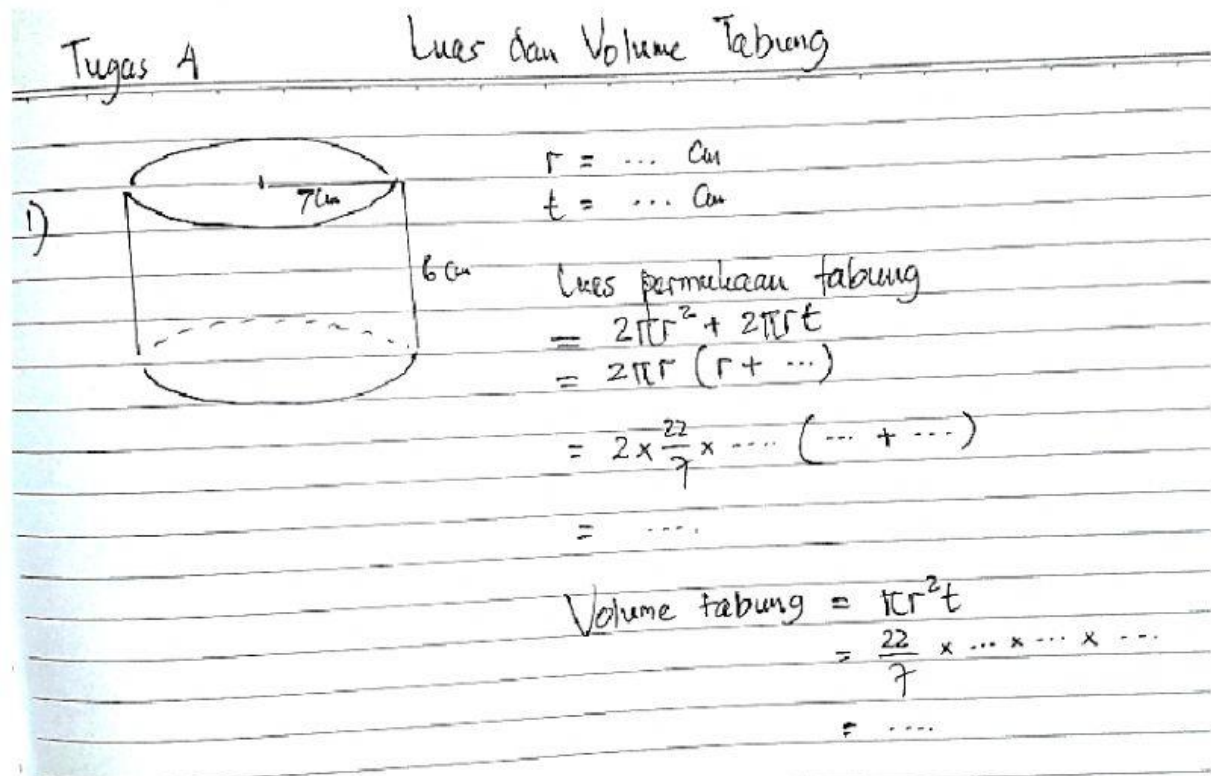 Tugas A
Luas dan Volume Tabung
1)
7 cm
6 cm
r = ... cm
t = ... cm
Luas permukaan tabung
= 2πr² + 2πrt
= 2πr (r + ...)
= 2 x 22/7 x .... (... + ...)
= ....
Volume tabung = πr²t
= 22/7 x ... x ... x ...
= ....